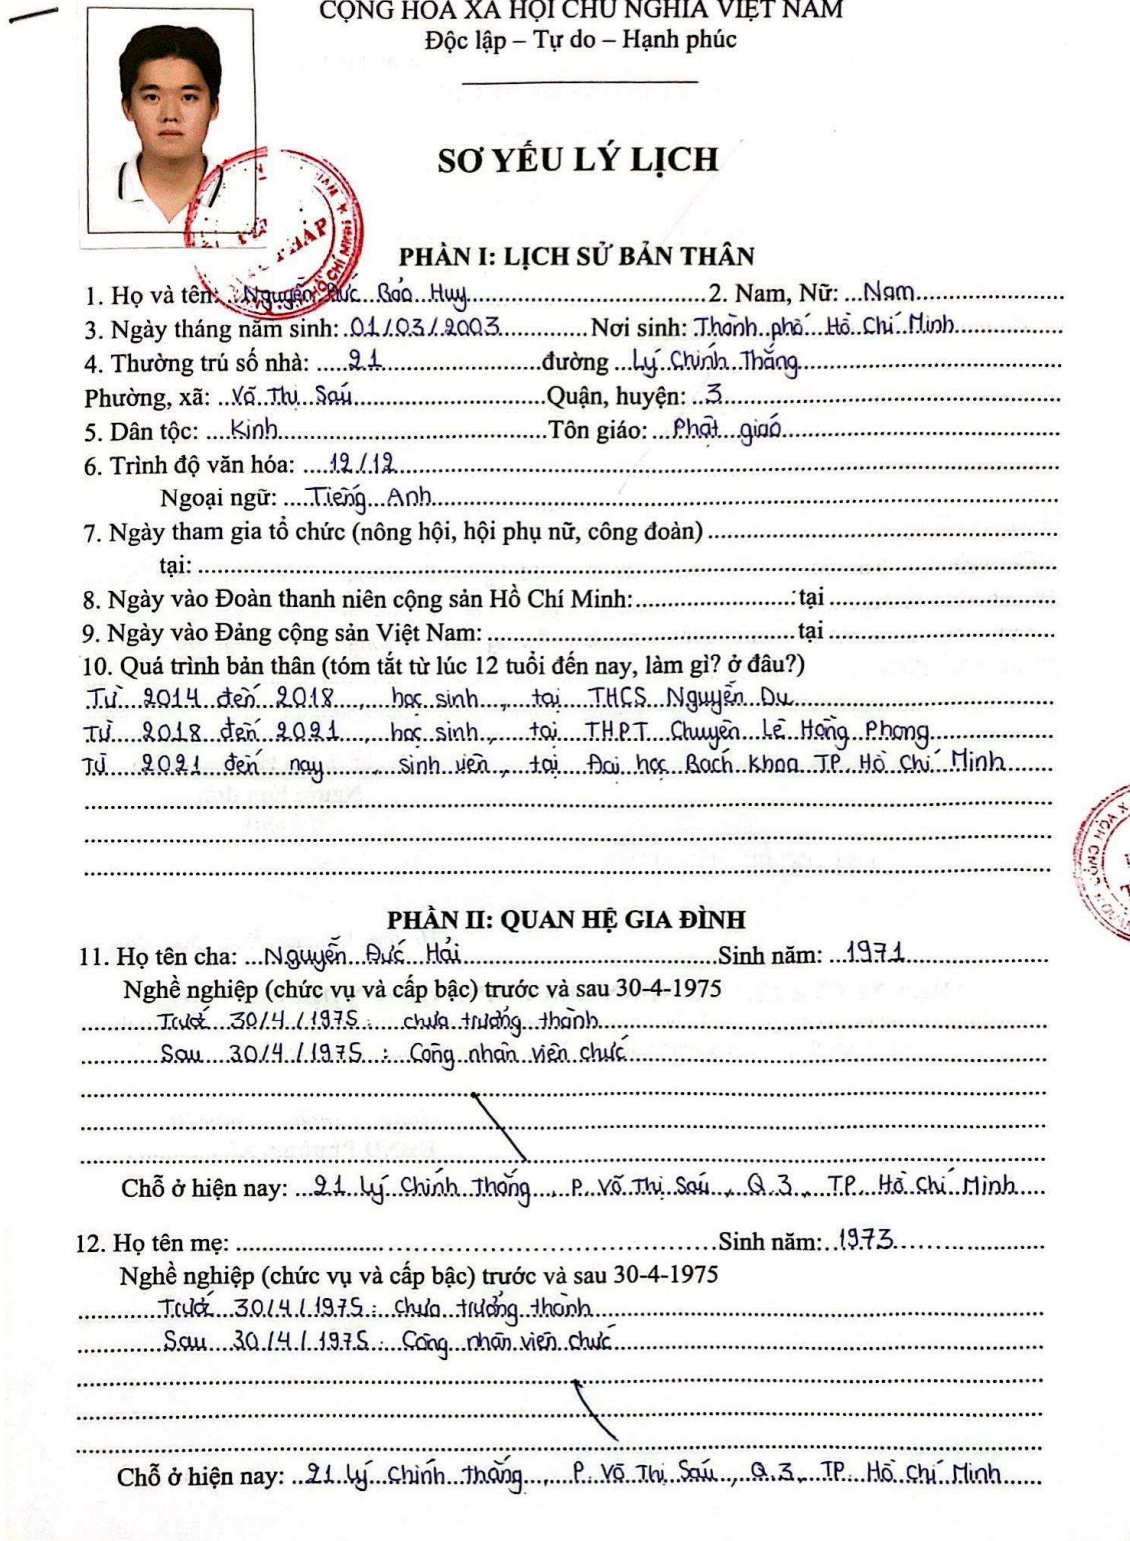 CỘNG HÒA XÃ HỘI CHỦ NGHĨA VIỆT NAM
Độc lập – Tự do – Hạnh phúc
SƠ YẾU LÝ LỊCH
PHẦN I: LỊCH SỬ BẢN THÂN
1. Họ và tên: Nguyễn Đức Bảo Huy 2. Nam, Nữ: Nam
3. Ngày tháng năm sinh: 01/03/2003 Nơi sinh: Thành phố Hồ Chí Minh
4. Thường trú số nhà: 21 đường Lý Chính Thắng
Phường, xã: Võ Thị Sáu Quận, huyện: 3
5. Dân tộc: Kinh Tôn giáo: Phật giáo
6. Trình độ văn hóa: 12/12
Ngoại ngữ: Tiếng Anh
7. Ngày tham gia tổ chức (nông hội, hội phụ nữ, công đoàn)
tại:
8. Ngày vào Đoàn thanh niên cộng sản Hồ Chí Minh: tại
9. Ngày vào Đảng cộng sản Việt Nam: tại
10. Quá trình bản thân (tóm tắt từ lúc 12 tuổi đến nay, làm gì? ở đâu?)
Từ 2014 đến 2018, học sinh, tại THCS Nguyễn Du
Từ 2018 đến 2021, học sinh, tại THPT Chuyên Lê Hồng Phong
Từ 2021 đến nay, sinh viên, tại Đại học Bách Khoa TP. Hồ Chí Minh
PHẦN II: QUAN HỆ GIA ĐÌNH
11. Họ tên cha: Nguyễn Đức Hải Sinh năm: 1971
Nghề nghiệp (chức vụ và cấp bậc) trước và sau 30-4-1975
Trước 30/4/1975: chưa trưởng thành
Sau 30/4/1975: Công nhân viên chức
Chỗ ở hiện nay: 21 Lý Chính Thắng, P. Võ Thị Sáu, Q.3, TP. Hồ Chí Minh
12. Họ tên mẹ: Sinh năm: 1973
Nghề nghiệp (chức vụ và cấp bậc) trước và sau 30-4-1975
Trước 30/4/1975: chưa trưởng thành
Sau 30/4/1975: Công nhân viên chức
Chỗ ở hiện nay: 21 Lý Chính Thắng, P. Võ Thị Sáu, Q.3, TP. Hồ Chí Minh